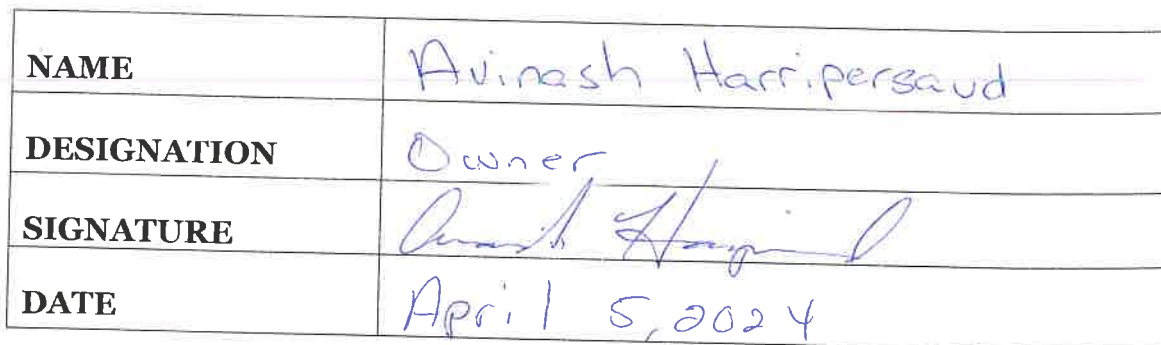 NAME Avinash Harripersaud
DESIGNATION Owner
SIGNATURE
DATE April 5, 2024